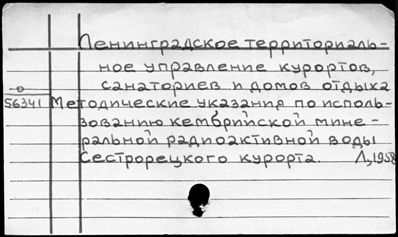 Ленинградское территориаль-
ное управление курортов,
санаториев и домов отдыха
56341 Методические указания по исполь-
зованию кембрийской мине-
ральной радиоактивной воды
Сестрорецкого курорта. Л, 1958